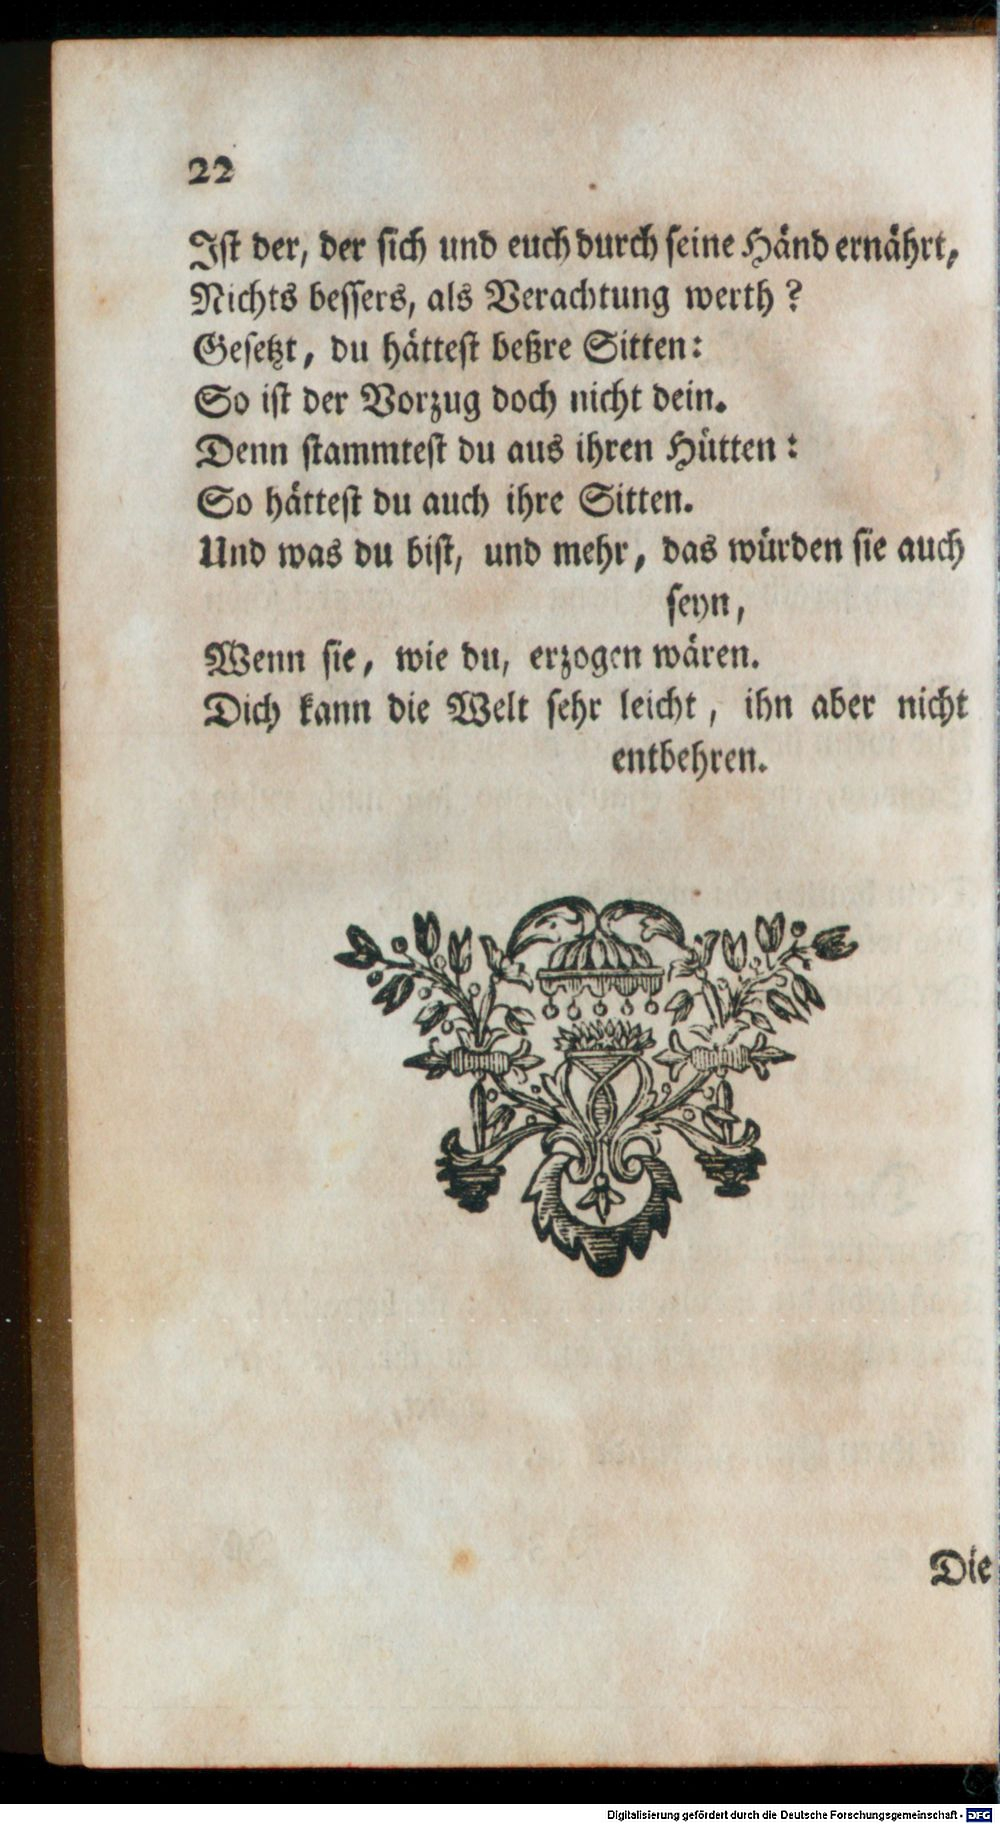 22
Ist der, der sich und euch durch seine Händ ernährt,
Nichts bessers, als Verachtung werth?
Gesetzt, du hättest beßre Sitten:
So ist der Vorzug doch nicht dein.
Denn stammtest du aus ihren Hütten:
So hättest du auch ihre Sitten.
Und was du bist, und mehr, das würden sie auch
seyn,
Wenn sie, wie du, erzogen wären.
Dich kann die Welt sehr leicht, ihn aber nicht
entbehren.
Die
Digitalisierung gefördert durch die Deutsche Forschungsgemeinschaft - DFG